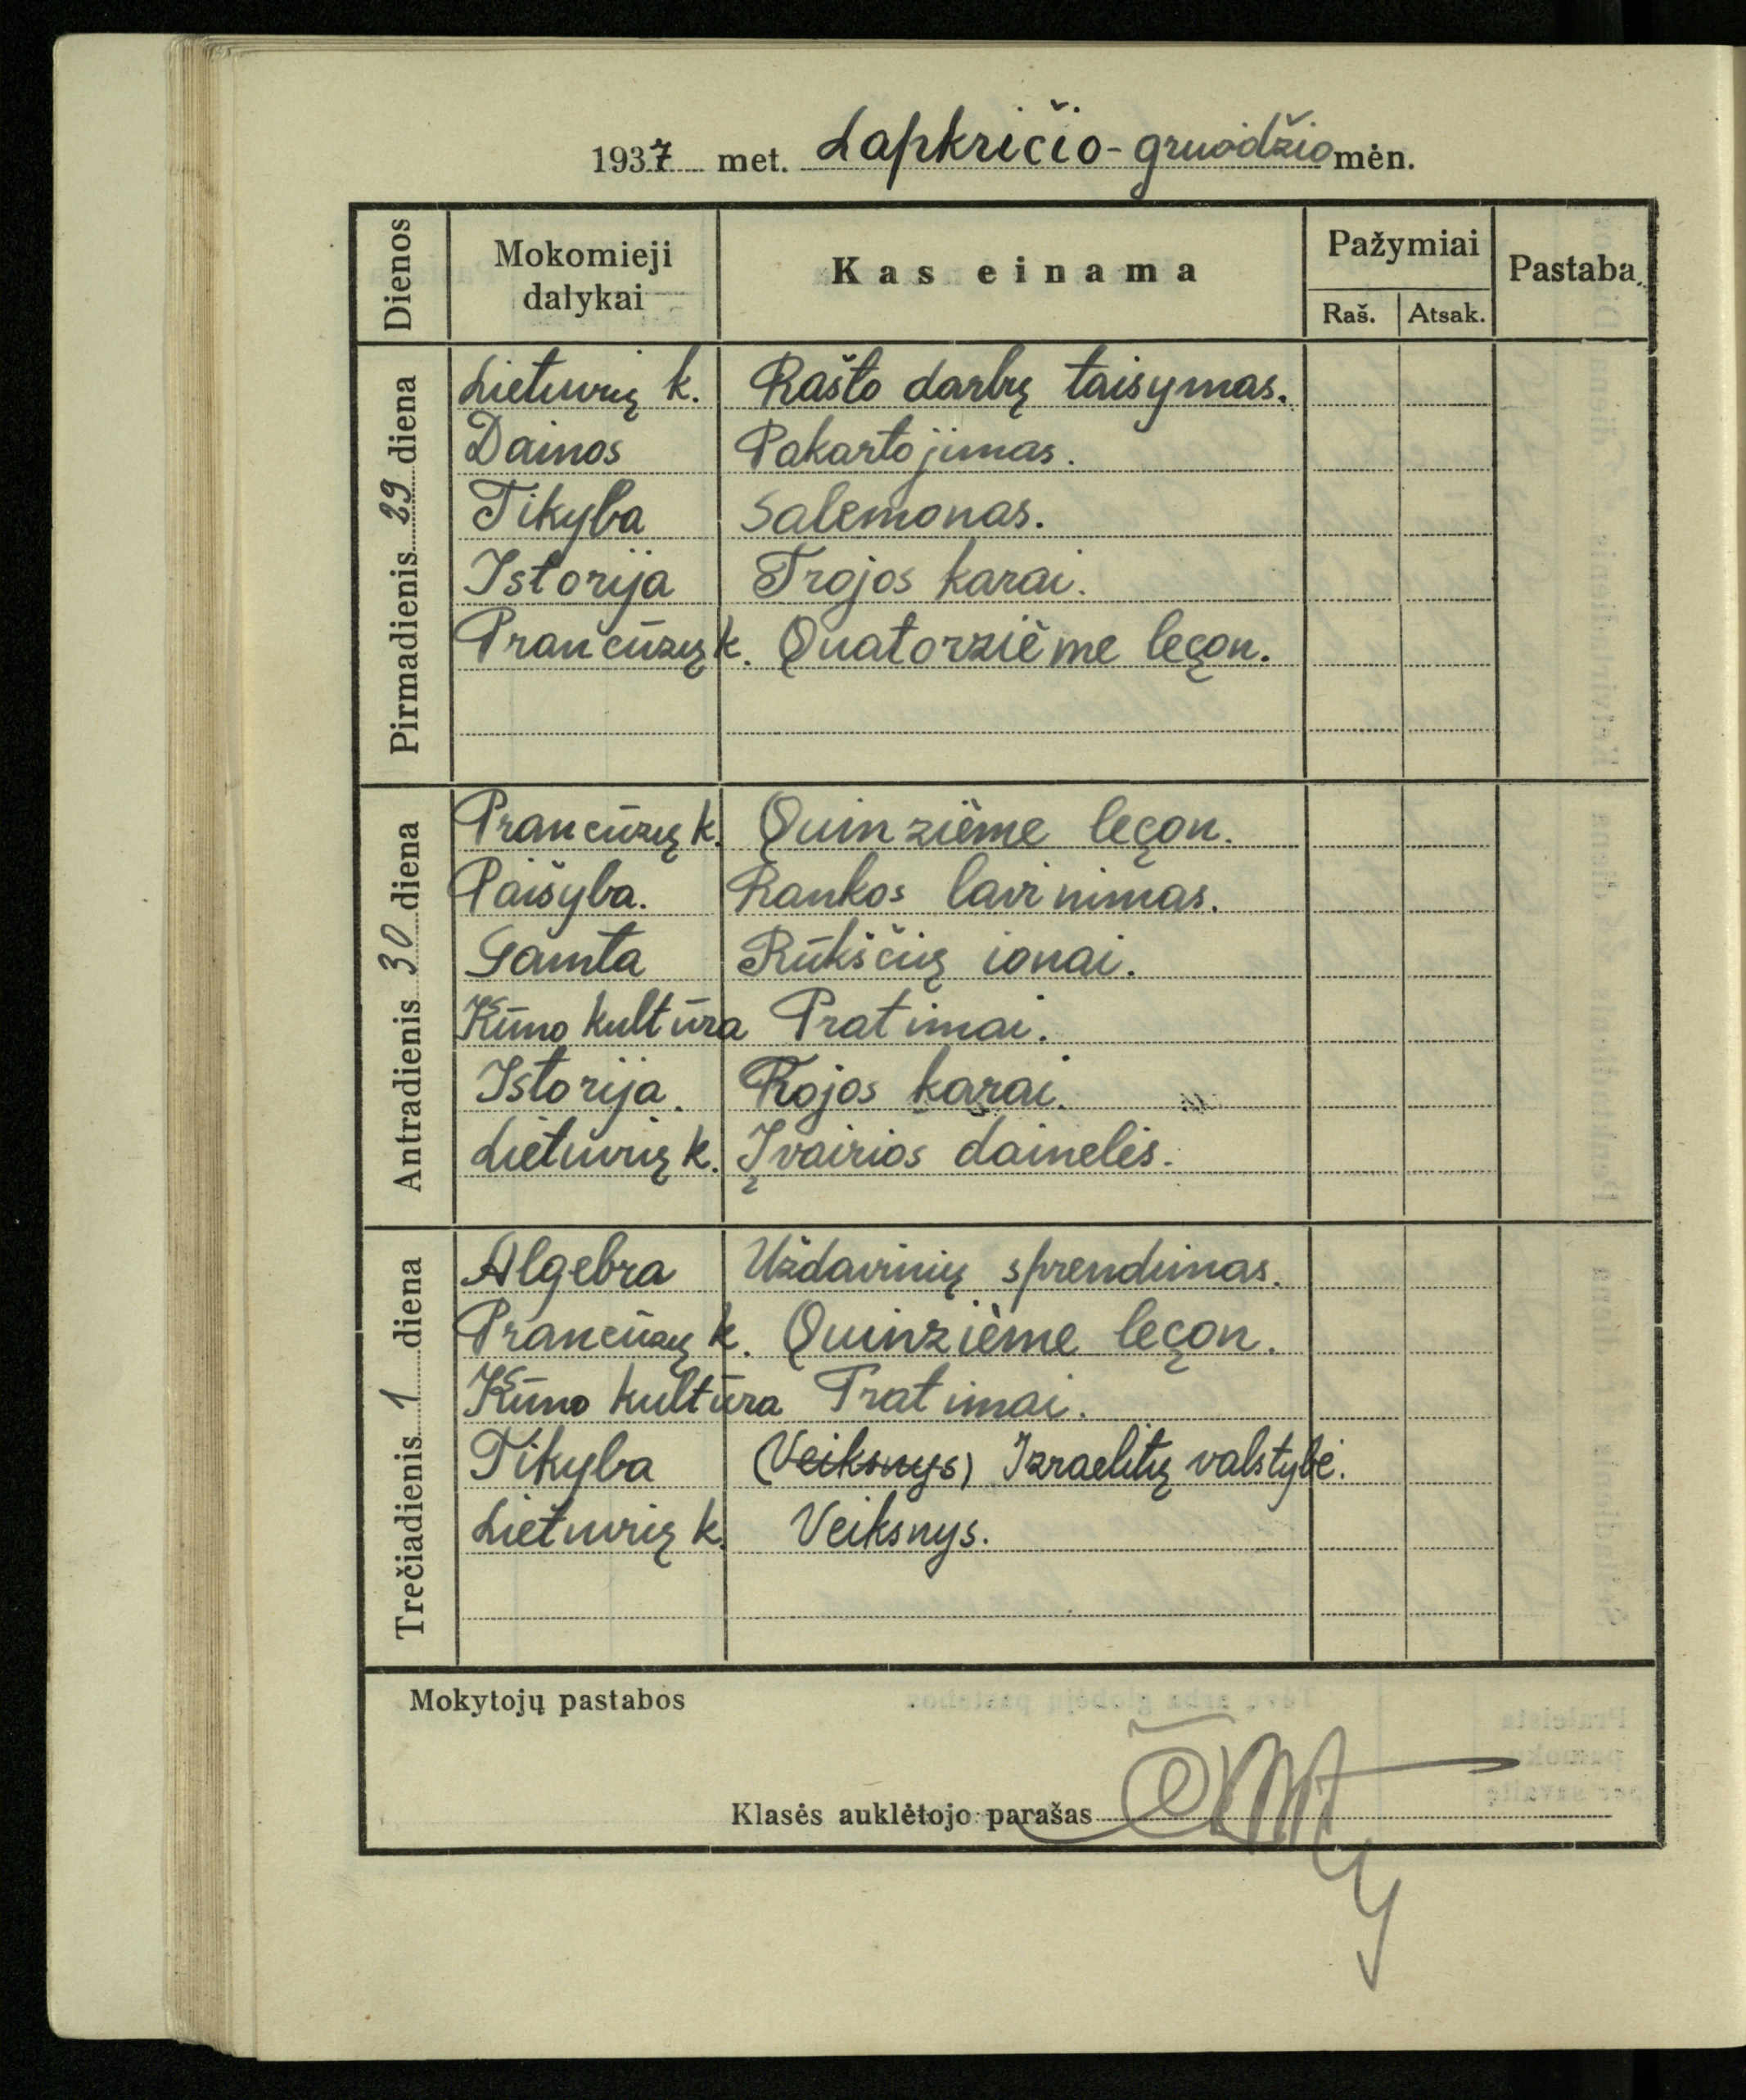 1937 met. Lapkričio-gruodžio mėn.
Dienos Mokomieji dalykai Kas einama Pažymiai Pastaba
Raš. Atsak.
Pirmadienis 29 diena
Lietuvių k. Rašto darbų taisymas.
Dainos Pakartojimas.
Tikyba Salemonas.
Istorija Trojos karai.
Prancūzų k. Quatorzième leçon.
Antradienis 30 diena
Prancūzų k. Quinzième leçon.
Paišyba. Rankos lavinimas.
Gamta Rūkščių ionai.
Kūno kultūra Pratimai.
Istorija. Trojos karai.
Lietuvių k. Įvairios dainelės.
Trečiadienis 1 diena
Algebra Uždavinių sprendimas.
Prancūzų k. Quinzième leçon.
Kūno kultūra Pratimai.
Tikyba (Veiksnys) Izraelitų valstybė.
Lietuvių k. Veiksnys.
Mokytojų pastabos
Klasės auklėtojo parašas